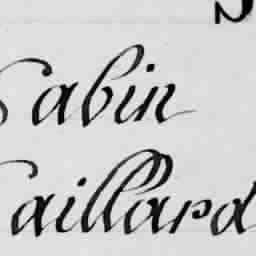 abin
aillard